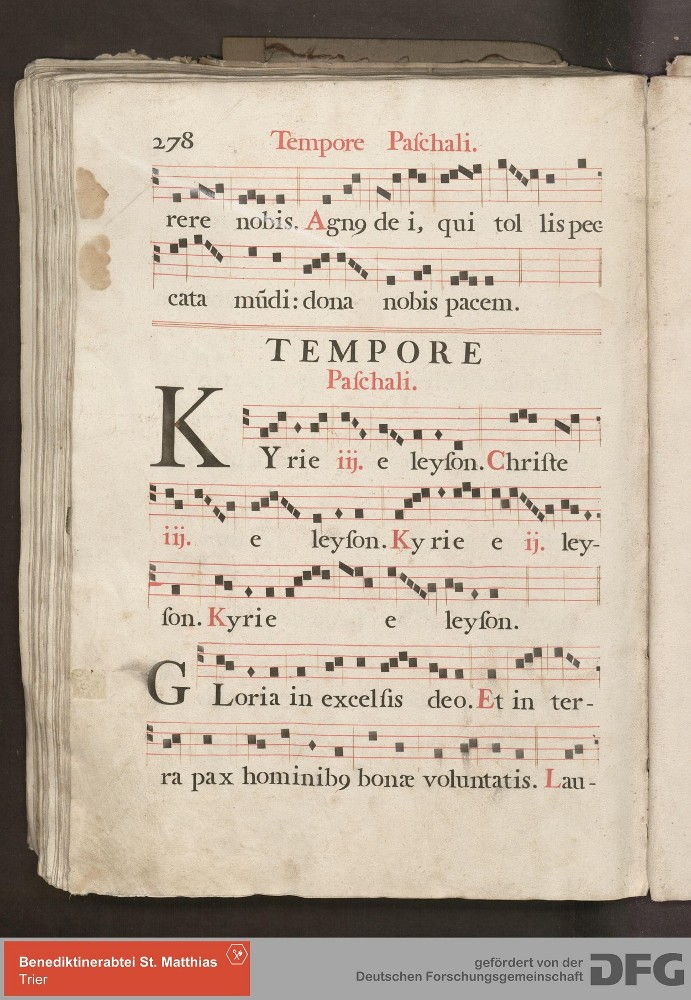 278 Tempore Paſchali.
rere nobis. Agnꝯ de i, qui tol lis pec
cata mūdi: dona nobis pacem.
TEMPORE
Paſchali.
KYrie iij. e leyſon. Chriſte
iij. e leyſon. Ky rie e ij. ley-
ſon. Kyrie e leyſon.
GLoria in excelſis deo. Et in ter-
ra pax hominibꝯ bonæ voluntatis. Lau-
Benediktinerabtei St. Matthias
Trier
gefördert von der
Deutschen Forschungsgemeinschaft
DFG